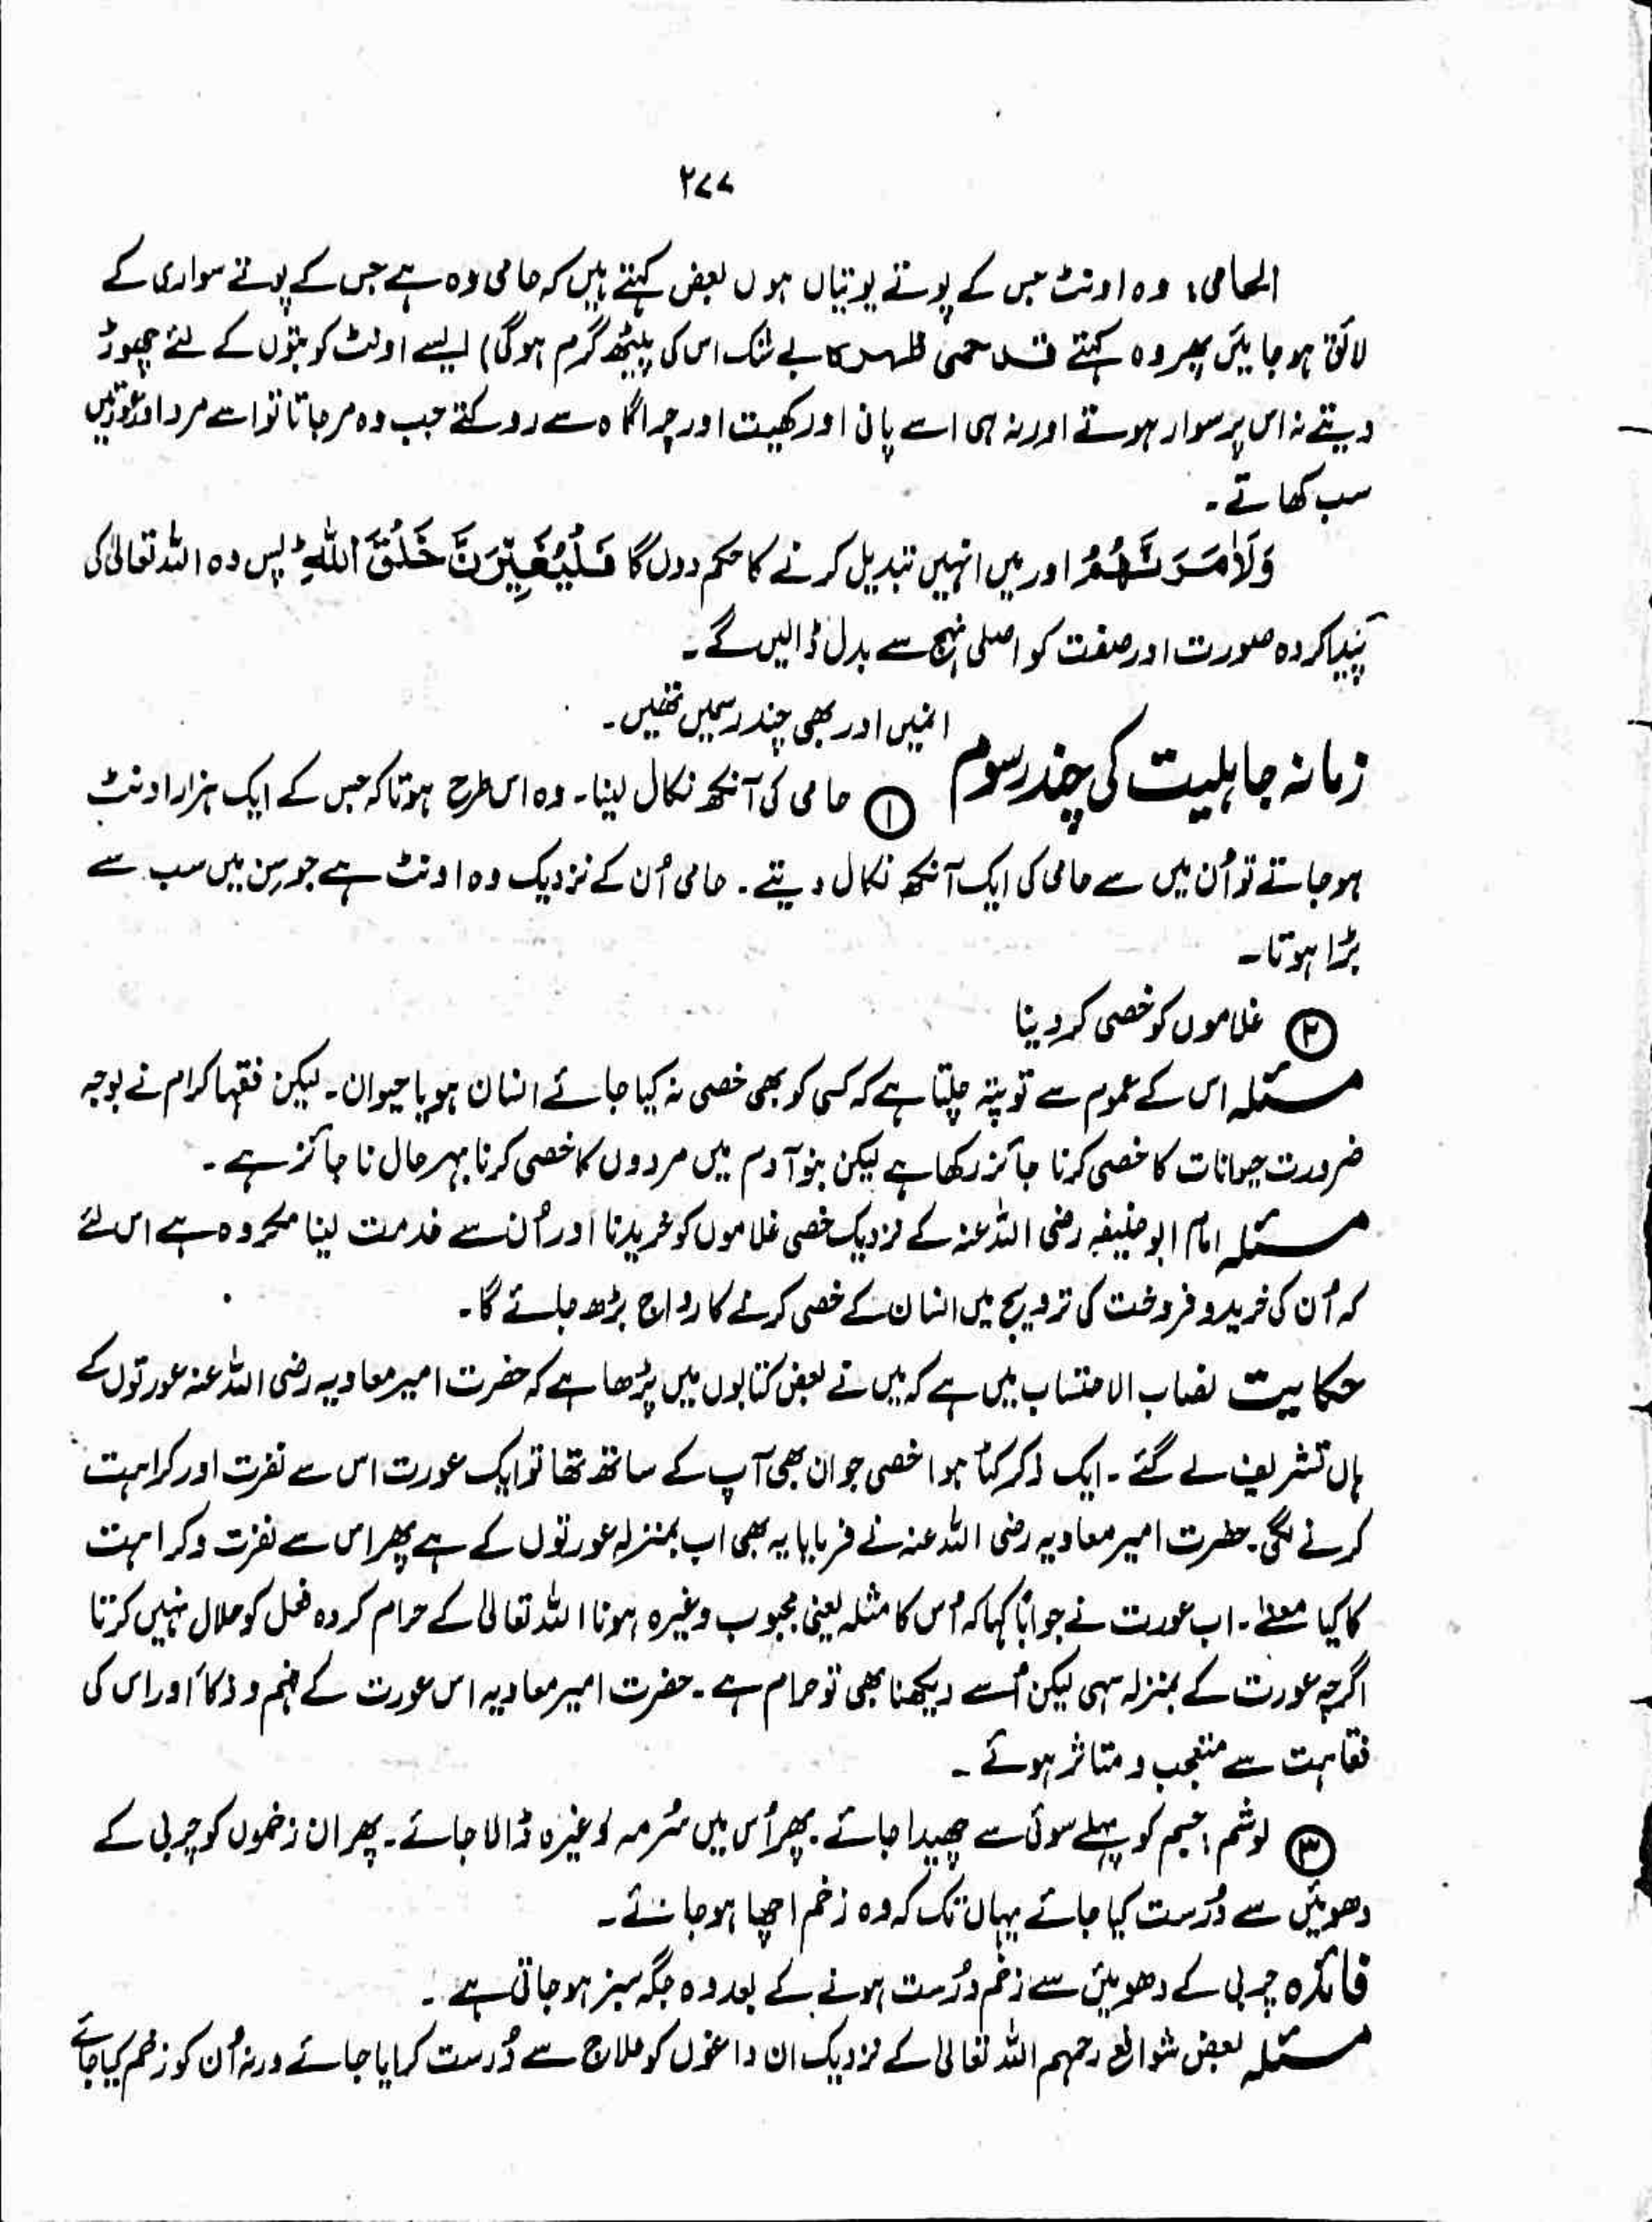 ۲۷۷
الحامی: وہ اونٹ جس کے پوتے پوتیاں ہوں بعض کہتے ہیں کہ حامی وہ ہے جس کے پوتے سواری کے
لائق ہو جائیں پھر وہ کہتے قد حمی ظہرہ بے شک اس کی پیٹھ گرم ہو گی) ایسے اونٹ کو بتوں کے لئے چھوڑ
دیتے نہ اس پر سوار ہوتے اور نہ ہی اسے پانی اور کھیت اور چراگاہ سے روکتے جب وہ مر جاتا تو اسے مرد اور عورتیں
سب کھاتے۔
وَلَاٰمُرَنَّهُمْ اور میں انہیں تبدیل کرنے کا حکم دوں گا فَلَيُغَيِّرُنَّ خَلْقَ اللّٰهِ ؕ پس وہ اللہ تعالیٰ کی
پیدا کردہ صورت اور صفت کو اصلی نہج سے بدل ڈالیں گے۔
زمانہ جاہلیت کی چند رسوم انہیں اور بھی چند رسمیں تھیں۔
① حامی کی آنکھ نکال لینا۔ وہ اس طرح ہوتا کہ جس کے ایک ہزار اونٹ
ہو جاتے تو اُن میں سے حامی کی ایک آنکھ نکال دیتے۔ حامی اُن کے نزدیک وہ اونٹ ہے جو سِن میں سب سے
بڑا ہوتا۔
② غلاموں کو خصی کر دینا
مسئلہ اس کے عموم سے تو پتہ چلتا ہے کہ کسی کو بھی خصی نہ کیا جائے انسان ہو یا حیوان۔ لیکن فقہا کرام نے بوجہ
ضرورت حیوانات کا خصی کرنا جائز رکھا ہے لیکن بنو آدم میں مردوں کا خصی کرنا بہرحال ناجائز ہے۔
مسئلہ امام ابو حنیفہ رضی اللہ عنہ کے نزدیک خصی غلاموں کو خریدنا اور اُن سے خدمت لینا مکروہ ہے اس لئے
کہ اُن کی خرید و فروخت کی ترویج میں انسان کے خصی کرنے کا رواج بڑھ جائے گا۔
حکایت نصاب الاحتساب میں ہے کہ میں نے بعض کتابوں میں پڑھا ہے کہ حضرت امیر معاویہ رضی اللہ عنہ عورتوں کے
ہاں تشریف لے گئے۔ ایک ذکر کٹا ہوا خصی جوان بھی آپ کے ساتھ تھا تو ایک عورت اس سے نفرت اور کراہت
کرنے لگی۔ حضرت امیر معاویہ رضی اللہ عنہ نے فرمایا یہ بھی اب بمنزلہ عورتوں کے ہے پھر اس سے نفرت و کراہت
کا کیا معنے۔ اب عورت نے جواباً کہا کہ اُس کا مثلہ یعنی مجبوب وغیرہ ہونا اللہ تعالیٰ کے حرام کردہ فعل کو حلال نہیں کرتا
اگرچہ عورت کے بمنزلہ سہی لیکن اُسے دیکھنا بھی تو حرام ہے۔ حضرت امیر معاویہ اس عورت کے فہم و ذکاء اور اس کی
فقاہت سے متعجب و متاثر ہوئے۔
③ لوشم: جسم کو پہلے سوئی سے چھیدا جائے۔ پھر اُس میں سُرمہ وغیرہ ڈالا جائے۔ پھر ان زخموں کو چربی کے
دھوئیں سے دُرست کیا جائے یہاں تک کہ وہ زخم اچھا ہو جائے۔
فائدہ چربی کے دھوئیں سے زخم دُرست ہونے کے بعد وہ جگہ سبز ہو جاتی ہے۔
مسئلہ بعض شوافع رحمہم اللہ تعالیٰ کے نزدیک ان داغوں کو علاج سے دُرست کرایا جائے ورنہ اُن کو زخم کیا جائے